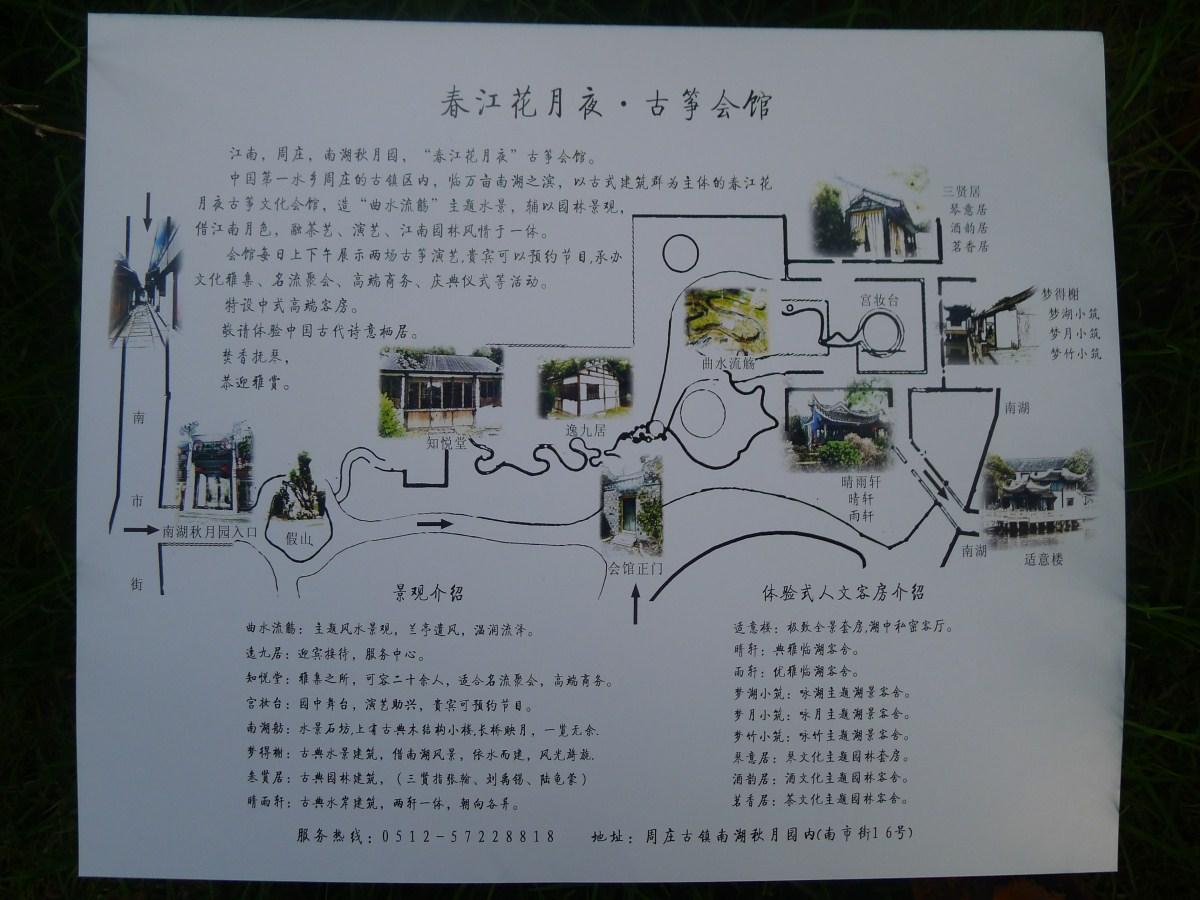 春江花月夜·古筝会馆
江南，周庄，南湖秋月园，“春江花月夜”古筝会馆。
中国第一水乡周庄的古镇区内，临万亩南湖之滨，以古式建筑群为主体的春江花
月夜古筝文化会馆，造“曲水流觞”主题水景，辅以园林景观，
借江南月色，融茶艺、演艺、江南园林风情于一体。
会馆每日上下午展示两场古筝演艺,贵宾可以预约节目,承办
文化雅集、名流聚会、高端商务、庆典仪式等活动。
特设中式高端客房。
敬请体验中国古代诗意栖居。
焚香抚琴，
恭迎雅赏。
三贤居
琴意居
酒韵居
茗香居
宫妆台
梦得榭
梦湖小筑
梦月小筑
梦竹小筑
曲水流觞
南湖
知悦堂
逸九居
晴雨轩
晴轩
雨轩
南
市
街
南湖秋月园入口
假山
会馆正门
南湖
适意楼
景观介绍
曲水流觞：主题风水景观，兰亭遗风，温润流泽。
逸九居：迎宾接待，服务中心。
知悦堂：雅集之所，可容二十余人，适合名流聚会，高端商务。
宫妆台：园中舞台，演艺助兴，贵宾可预约节目。
南湖舫：水景石坊,上有古典木结构小楼,长桥映月，一览无余.
梦得榭：古典水景建筑，借南湖风景，依水而建，风光旖旎.
叁賢居：古典园林建筑，（三賢指张翰、刘禹锡、陆龟蒙）
晴雨轩：古典水岸建筑，两轩一体，朝向各异。
体验式人文客房介绍
适意楼：极致全景套房,湖中私密客厅。
晴轩：典雅临湖客舍。
雨轩：优雅临湖客舍。
梦湖小筑：咏湖主题湖景客舍。
梦月小筑：咏月主题湖景客舍。
梦竹小筑：咏竹主题湖景客舍。
琴意居：琴文化主题园林套房。
酒韵居：酒文化主题园林客舍。
茗香居：茶文化主题园林客舍。
服务热线：0512-57228818 地址：周庄古镇南湖秋月园内(南市街16号)